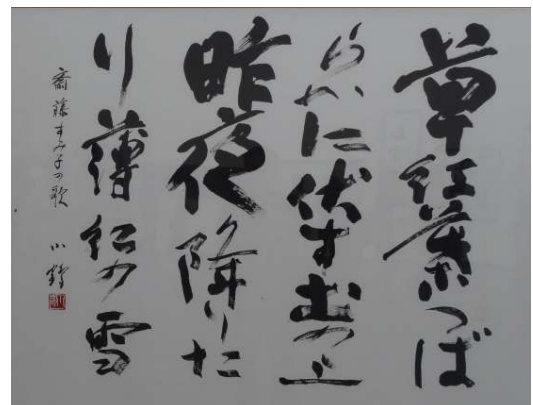 草紅葉つば
らかに伏す の上
昨夜降りた
り薄紅の雪
齋藤すみ子の歌